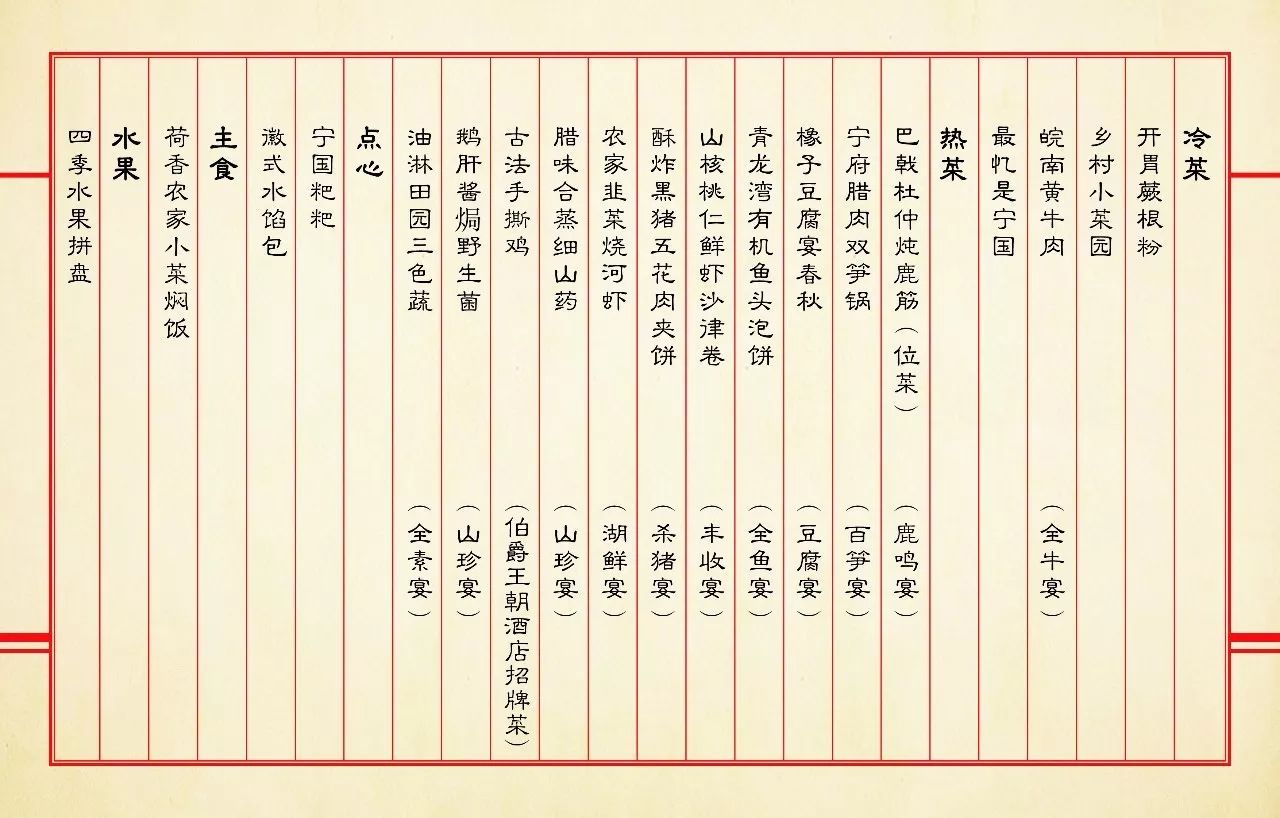 冷菜
开胃蕨根粉
乡村小菜园
皖南黄牛肉（全牛宴）
最忆是宁国
热菜
巴戟杜仲炖鹿筋（位菜）（鹿鸣宴）
宁府腊肉双笋锅（百笋宴）
橡子豆腐宴春秋（豆腐宴）
青龙湾有机鱼头泡饼（全鱼宴）
山核桃仁鲜虾沙律卷（丰收宴）
酥炸黑猪五花肉夹饼（杀猪宴）
农家韭菜烧河虾（湖鲜宴）
腊味合蒸细山药（山珍宴）
古法手撕鸡（伯爵王朝酒店招牌菜）
鹅肝酱焗野生菌（山珍宴）
油淋田园三色蔬（全素宴）
点心
宁国粑粑
徽式水馅包
主食
荷香农家小菜焖饭
水果
四季水果拼盘